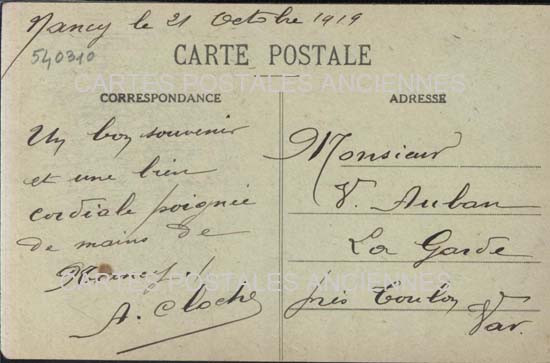 Nancy le 21 Octobre 1919
540310
CARTE POSTALE
CARTES POSTALES ANCIENNES
CORRESPONDANCE
Un bon souvenir
et une bien
cordiale poignée
de mains de
Nancy !
A. Cloche
ADRESSE
Monsieur
V. Auban
La Garde
près Toulon
Var.
CARTES POSTALES ANCIENNES